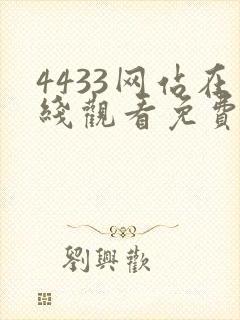 4433网佔在
綫觀看免費
劉興歡